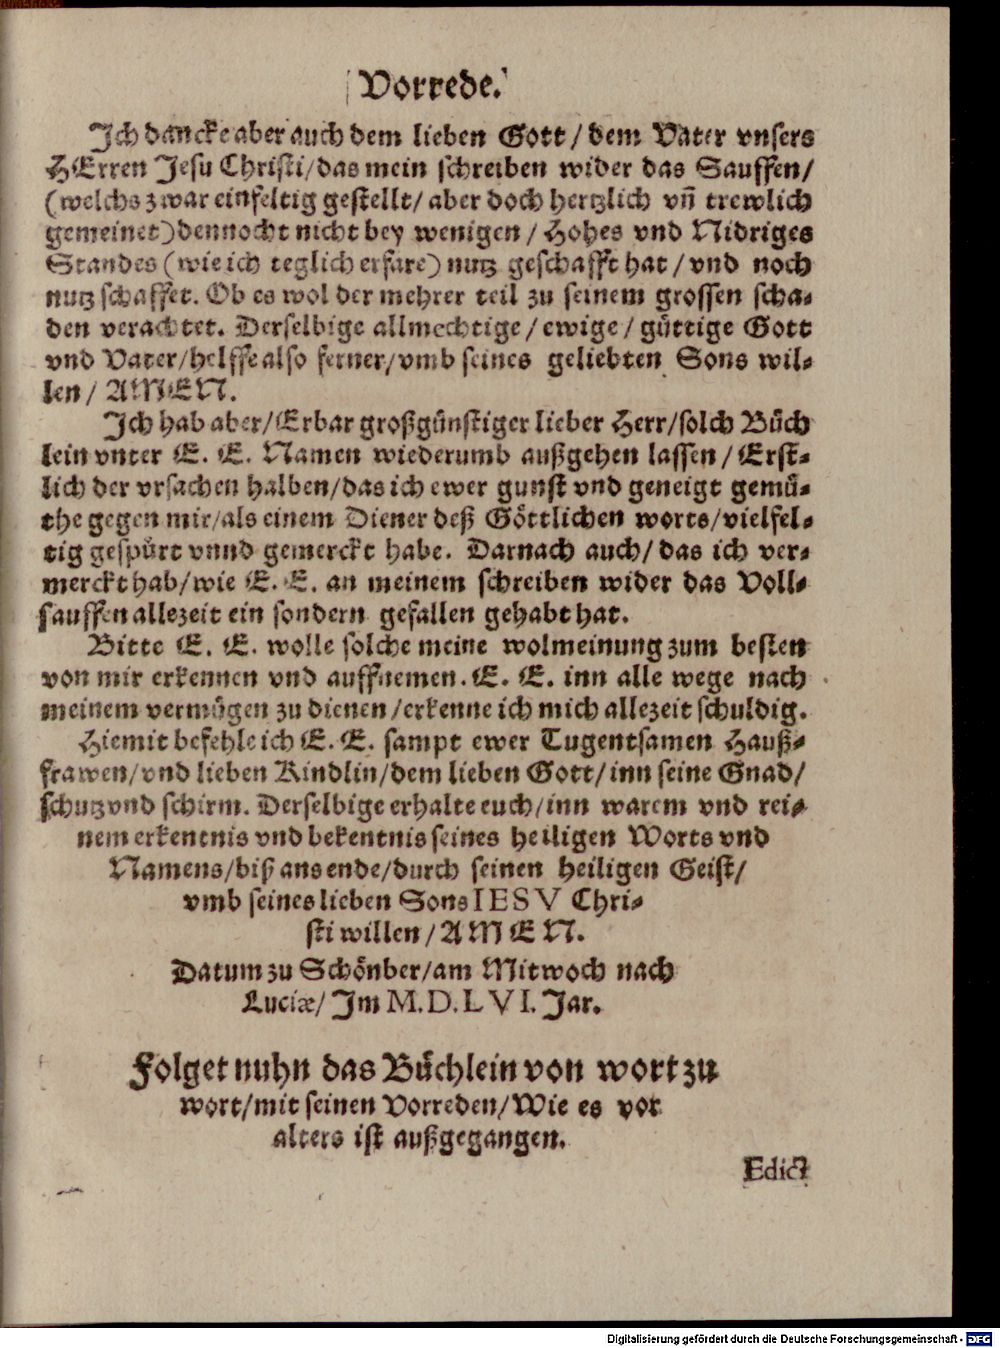 Vorrede.
Ich dancke aber auch dem lieben Gott / dem Vater vnsers
HErren Jesu Christi/das mein schreiben wider das Sauffen/
(welchs zwar einfeltig gestellt/ aber doch hertzlich vñ trewlich
gemeinet) dennocht nicht bey wenigen / Hohes vnd Nidriges
Standes (wie ich teglich erfare) nutz geschafft hat / vnd noch
nutz schaffet. Ob es wol der mehrer teil zu seinem grossen scha-
den verachtet. Derselbige allmechtige / ewige / güttige Gott
vnd Vater/helffe also ferner/vmb seines geliebten Sons wil-
len / AMEN.
Ich hab aber/Erbar großgünstiger lieber Herr/solch Büch
lein vnter E. E. Namen wiederumb außgehen lassen / Erst-
lich der vrsachen halben/das ich ewer gunst vnd geneigt gemü-
the gegen mir/als einem Diener deß Göttlichen worts/vielfel-
tig gespürt vnnd gemerckt habe. Darnach auch/ das ich ver-
merckt hab/wie E. E. an meinem schreiben wider das Voll-
sauffen allezeit ein sondern gefallen gehabt hat.
Bitte E. E. wolle solche meine wolmeinung zum besten
von mir erkennen vnd auffnemen. E. E. inn alle wege nach
meinem vermögen zu dienen /erkenne ich mich allezeit schuldig.
Hiemit befehle ich E. E. sampt ewer Tugentsamen Hauß-
frawen/vnd lieben Kindlin/dem lieben Gott/inn seine Gnad/
schutz vnd schirm. Derselbige erhalte euch/inn warem vnd rei-
nem erkentnis vnd bekentnis seines heiligen Worts vnd
Namens/biß ans ende/durch seinen heiligen Geist/
vmb seines lieben Sons IESV Chri-
sti willen / AMEN.
Datum zu Schönber/am Mitwoch nach
Luciæ/ Im M.D.LVI. Jar.
Folget nuhn das Büchlein von wort zu
wort/mit seinen Vorreden/Wie es vor
alters ist außgegangen.
Edict
Digitalisierung gefördert durch die Deutsche Forschungsgemeinschaft - DFG